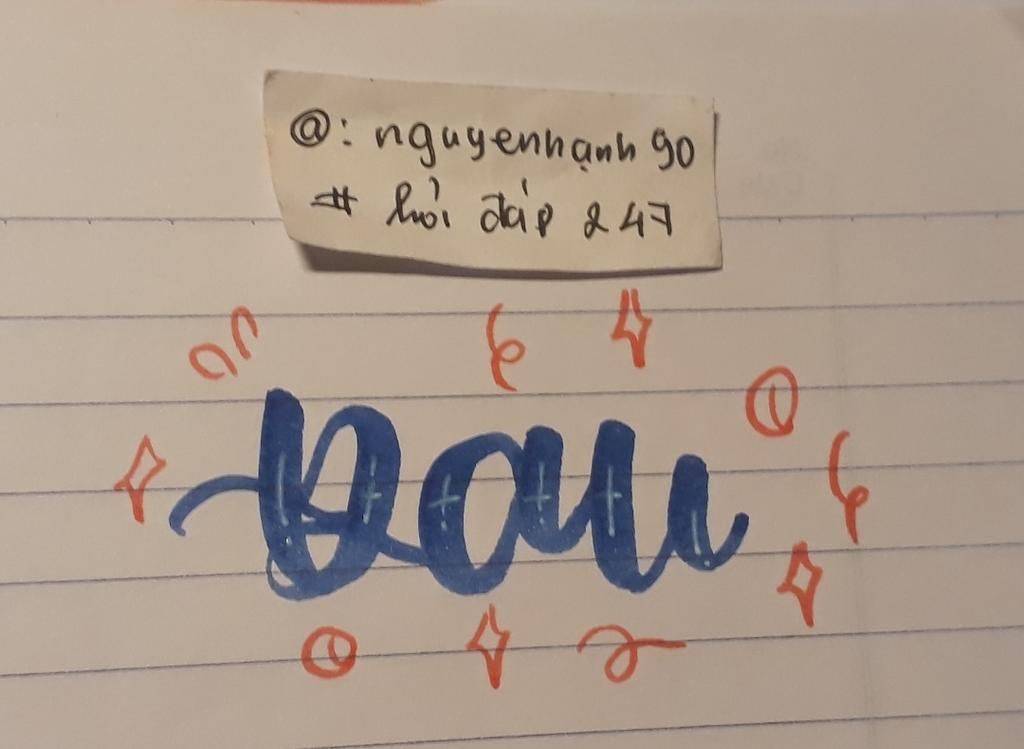 @: nguyenhạnh 90
# hỏi đáp 247
Dau